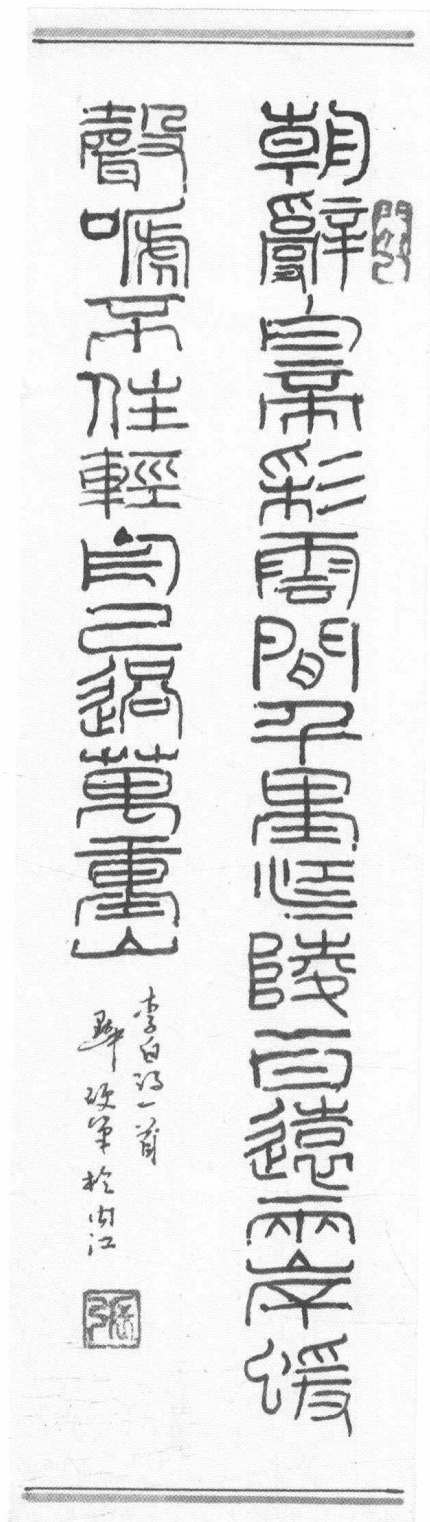 朝辭白帝彩雲間千里江陵一日還兩岸猨
聲嗁不住輕舟已過萬重山
李白詩一首
硬筆於内江
張